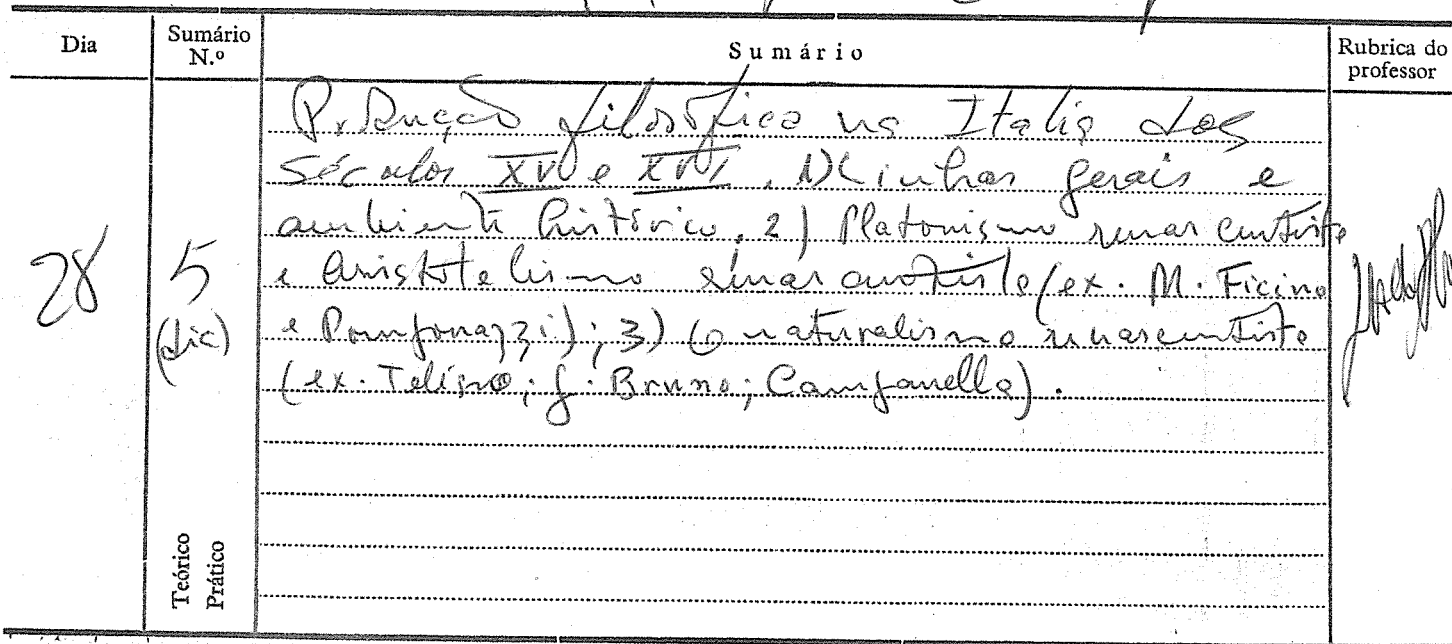 Dia
Sumário N.º
Sumário
Rubrica do professor
28
5
(dic)
Produção filosófica na Italia dos
séculos XV e XVI. 1) Linhas gerais e
ambiente histórico. 2) Platonismo renascentista
e Aristotelismo renascentista (ex. M. Ficino
e Pomponazzi); 3) O naturalismo renascentista
(ex. Telésio; G. Bruno; Campanella).
Teórico
Prático